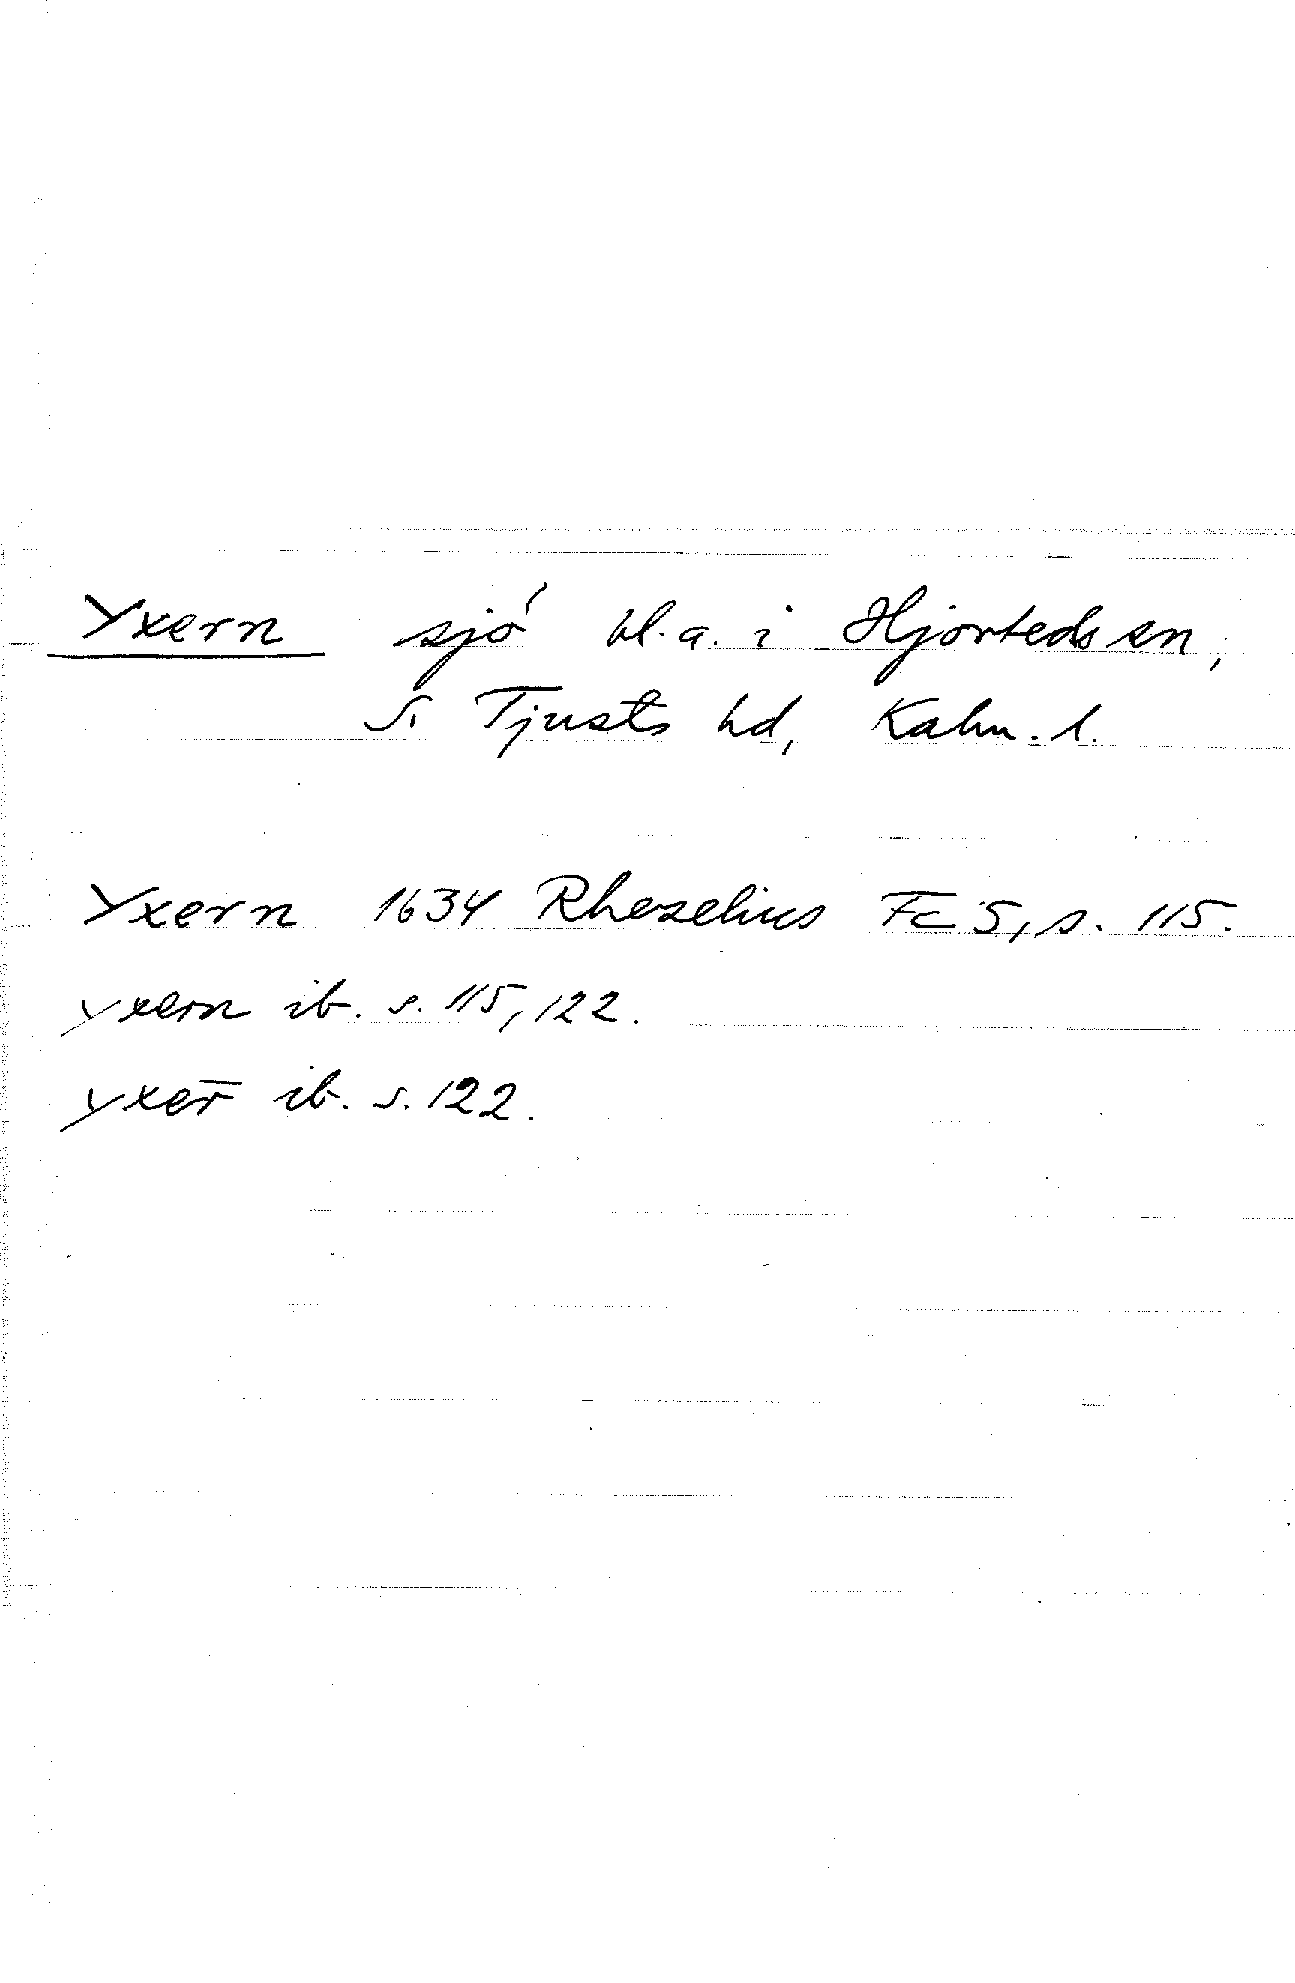 Yxern sjö bl.a. i Hjorteds sn,
S. Tjusts hd, Kalm. l.
Yxern 1634 Rhezelius Fc 5, s. 115.
yxern ib. s. 115, 122.
yxer̅ ib. s. 122.